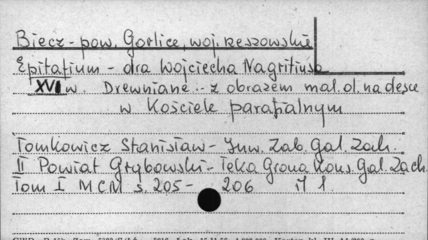 Biecz - pow. Gorlice, woj. rzeszowskie
Epitafium - dra Wojciecha Nagritiusa
XVI w. Drewniane - z obrazem mal. ol. na desce
w Kościele parafialnym
Tomkowicz Stanisław - Inw. Zab. Gal. Zach.
II Powiat Grybowski - Teka Grona Kons. Gal. Zach.
Tom I MCM s. 205 - 206 il 1.